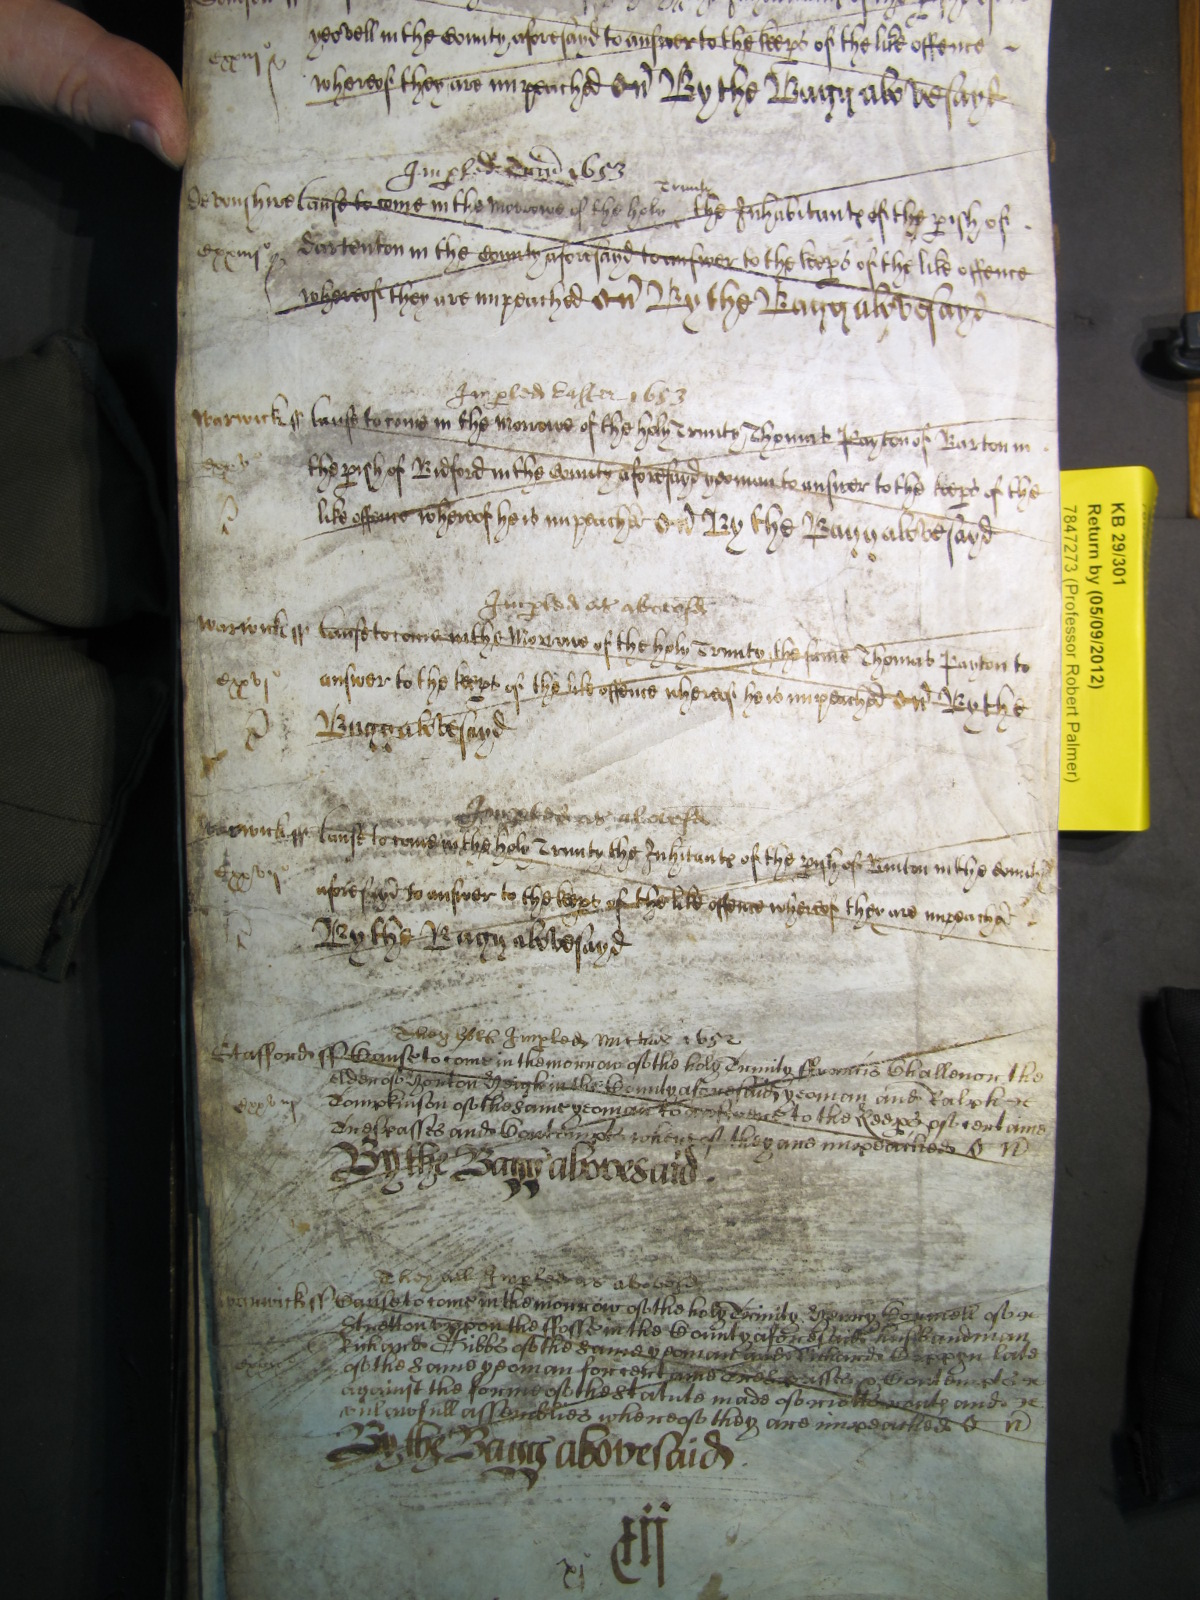 yeovell in the County aforesayd to answer to the keeps of the like offence
whereof they are impeached &c By the Bagg abovesayd
Impled 1653
Devonshire Cause to come in the Morrowe of the holy Trinity the Inhabitants of the pish of
cxxiiijo Dartenton in the County aforesayd to answer to the keeps of the like offence
whereof they are impeached &c By the Bagg abovesayd
Impled Easter 1653
Warwick ss Cause to come in the Morrowe of the holy Trinity Thomas Payton of Barton in
cxxv the pish of Bidford in the County aforesayd yeoman to answer to the keeps of the
like offence whereof he is impeached &c By the Bagg abovesayd
Impled as abovesd
Warwick ss Cause to come in the Morrowe of the holy Trinity the same Thomas Payton to
cxxvjo answer to the keeps of the like offence whereof he is impeached &c By the
Bagg abovesayd
Impled as abovesd
Warwick ss Cause to come in the holy Trinity the Inhitants of the pish of Binton in the County
cxxvijo aforesayd to answer to the keeps of the like offence whereof they are impeached
By the Bagg abovesayd
They both Impled Michas 1652
Stafford ss Cause to come in the morrow of the holy Trinity Francis Challenor the
elder of Norton in the County aforesaid yeoman and Ralph
Tompkinson of the same yeoman to answere to the Keeps of certaine
Trespasses and Contempts whereof they are impeached &c
By the Bagg abovesaid.
They all Impled as abovesd
Warwick ss Cause to come in the morrow of the holy Trinity Henry of
Stretton uppon the Fosse in the County aforesaid husbandman
Richard Tibbs of the same yeoman and Richard late
of the same yeoman for certaine Trespasses & Contempts
against the forme of the Statute made of riotts routs and
unlawfull assemblies whereof they are impeached &c
By the Bagg abovesaid.
xjo
KB 29/301
Return by (05/09/2012)
7847273 (Professor Robert Palmer)